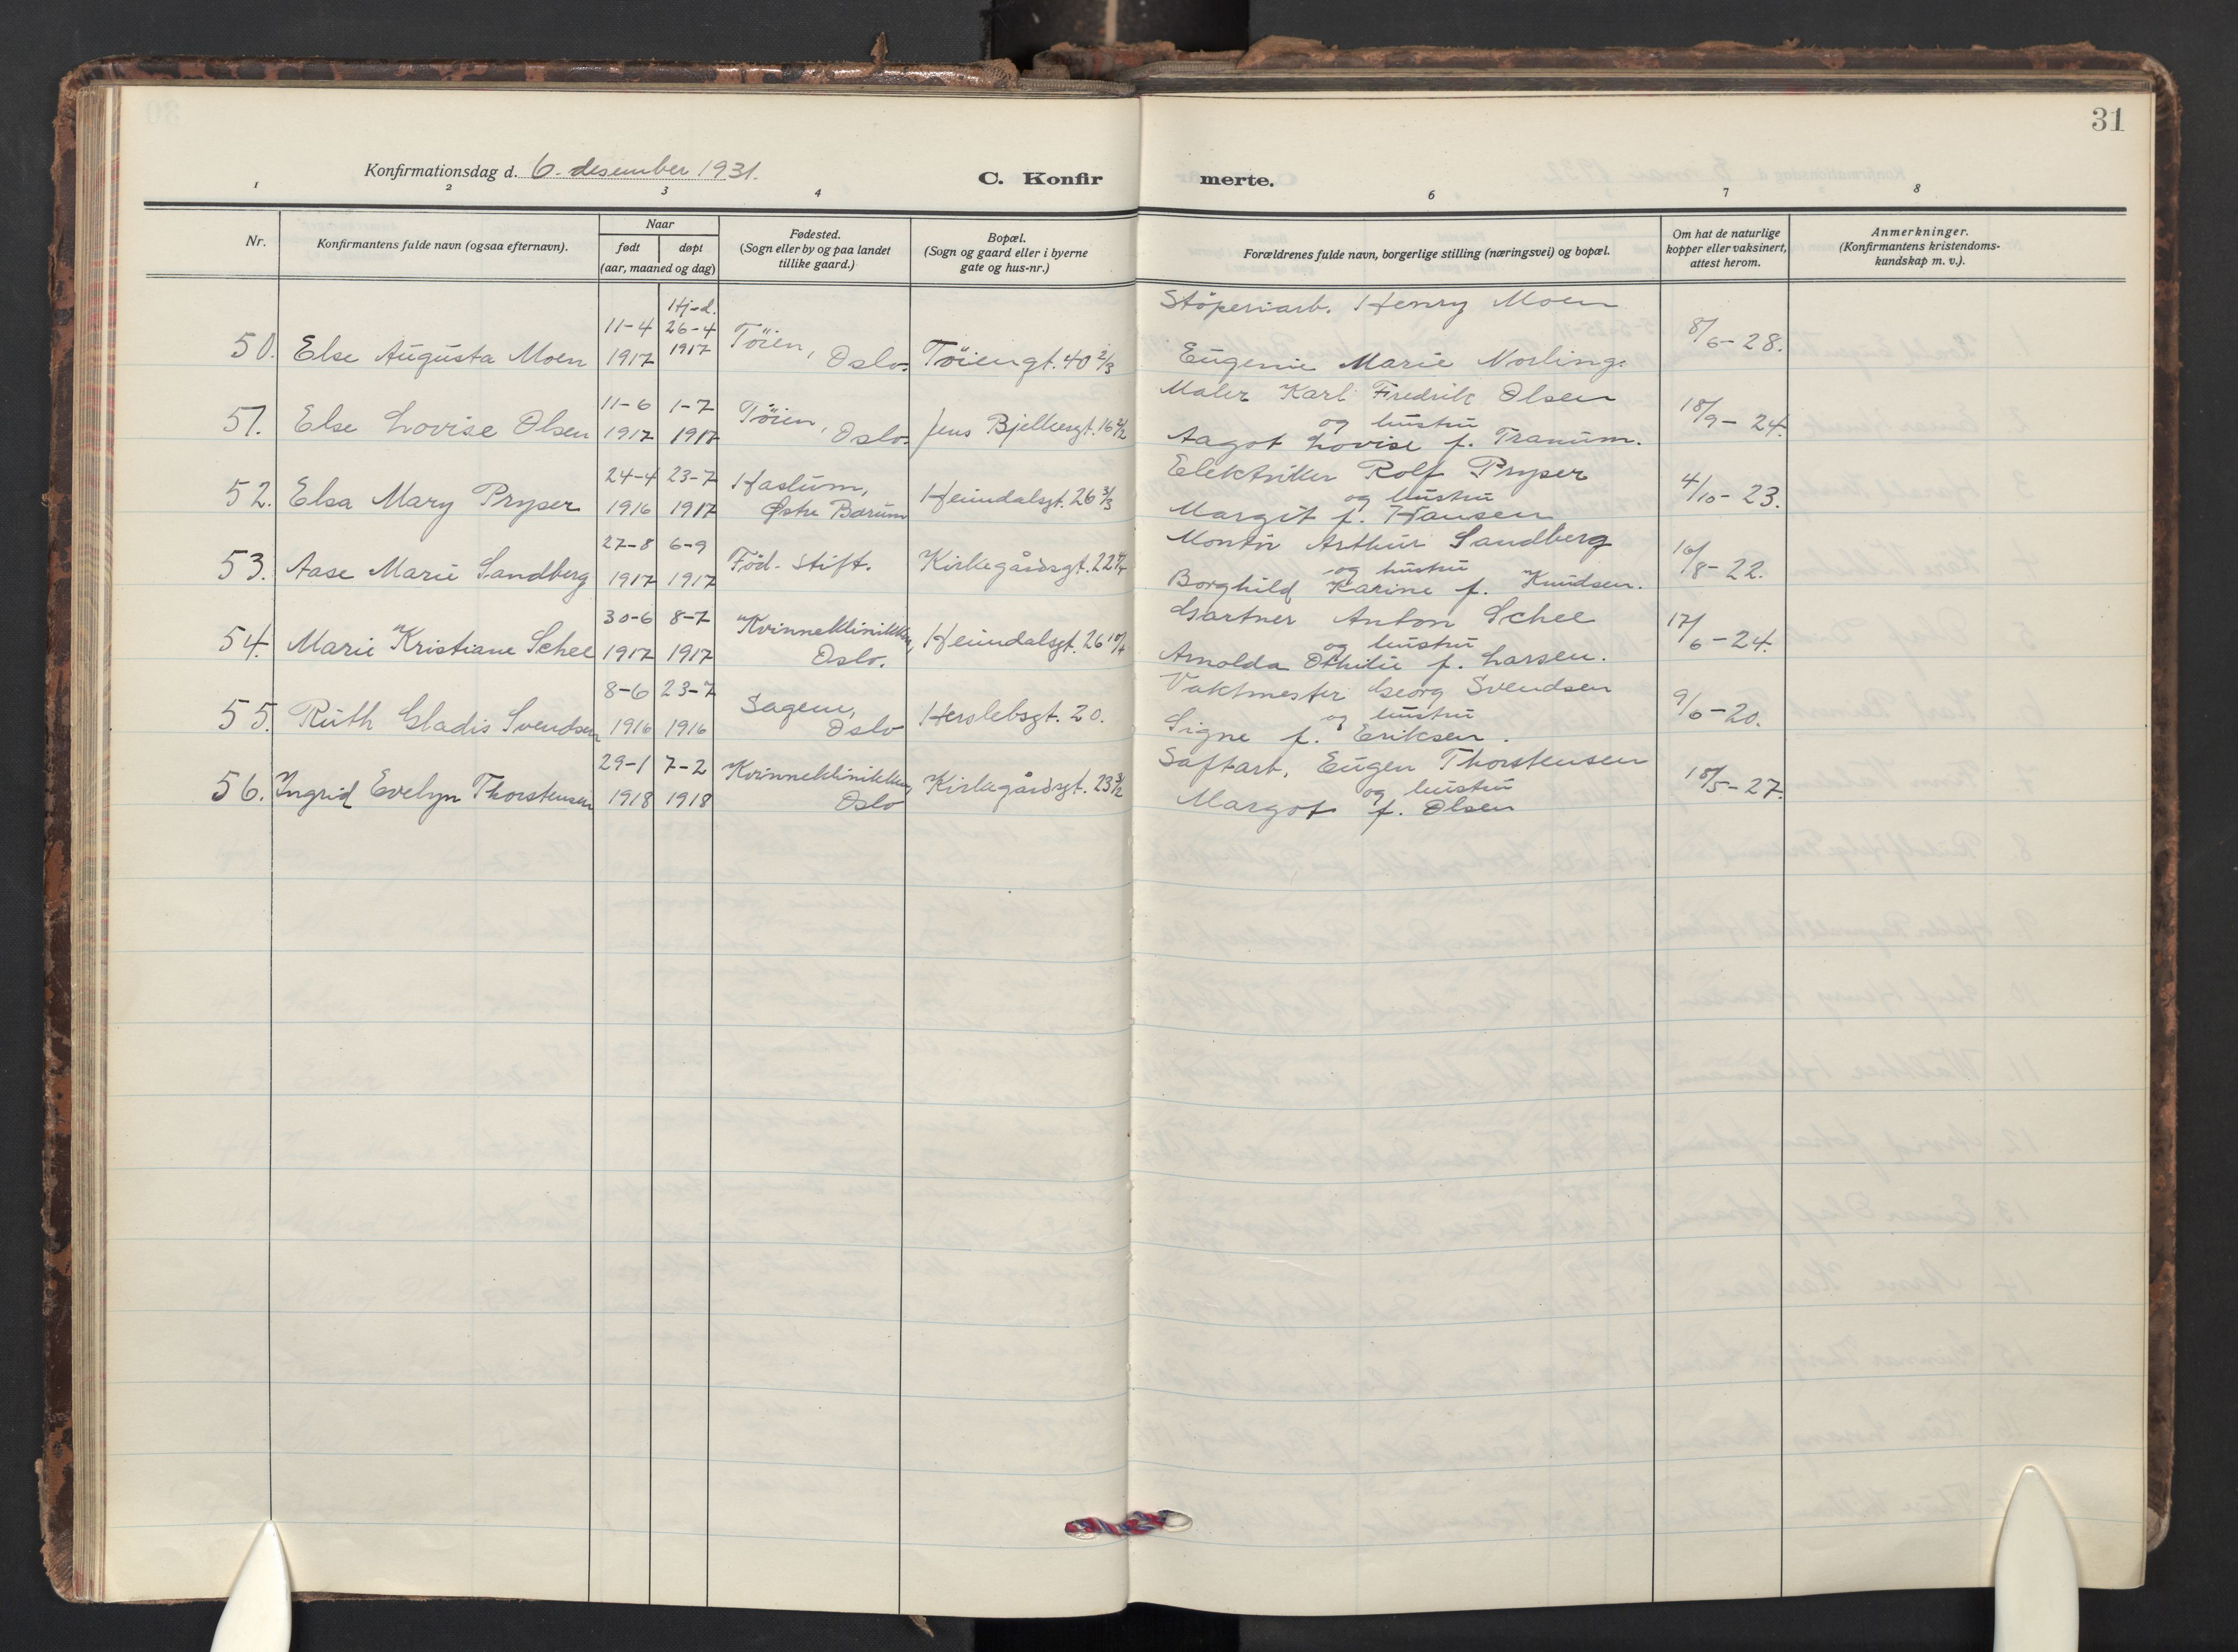 31
Konfirmationsdag d. 6. desember 1931.
C. Konfirmerte.
1 2 3 4 6 7 8
Nr.
Konfirmantens fulde navn (ogsaa efternavn).
Naar
født døpt
(aar, maaned og dag)
Fødested.
(Sogn eller by og paa landet
tillike gaard.)
Bopæl.
(Sogn og gaard eller i byerne
gate og hus-nr.)
Forældrenes fulde navn, borgerlige stilling (næringsvei) og bopæl.
Om hat de naturlige
kopper eller vaksinert,
attest herom.
Anmerkninger.
(Konfirmantens kristendoms-
kundskap m. v.).
Hj-d. Støperiarb. Henry Moen
11-4 26-4 Tøien, 8/6-28.
50. Else Augusta Moen 1917 1917 Oslo. Tøiengt. 40 2/3 Eugenie Marie Norling.
11-6 1-7 Tøien, Maler Karl Fredrik Olsen 18/9-24.
51. Else Lovise Olsen 1917 1917 Oslo. Jens Bjelkesgt. 16 og hustru
Aagot Lovise f. Tranum.
24-4 23-7 Haslum, Elektriker Rolf Pryser 4/10-23.
52. Elsa Mary Pryser 1916 1917 Østre Bærum Heimdalsgt. 26 3/3 og hustru
Margit f. Hansen
27-8 6-9 Montør Arthur Sandberg 16/8-22.
53. Aase Marie Sandberg 1917 1917 Fød. stift. Kirkegårdsgt. 22 og hustru
Borghild Karine f. Knudsen.
30-6 8-7 Kvinneklinikken, Gartner Anton Schee 17/6-24.
54. Marie Kristiane Schee 1917 1917 Oslo. Heimdalsgt. 26 og hustru
Arnolda Othilie f. Larsen.
8-6 23-7 Sagene, Vaktmester Georg Svendsen 9/6-20.
55. Ruth Gladis Svendsen 1916 1916 Oslo Herslebsgt. 20. og hustru
Signe f. Eriksen.
29-1 7-2 Kvinneklinikken, Saftarb. Eugen Thorstensen 18/5-27.
56. Ingrid Evelyn Thorstensen 1918 1918 Oslo Kirkegårdsgt. 23 3/2 og hustru
Margot f. Olsen